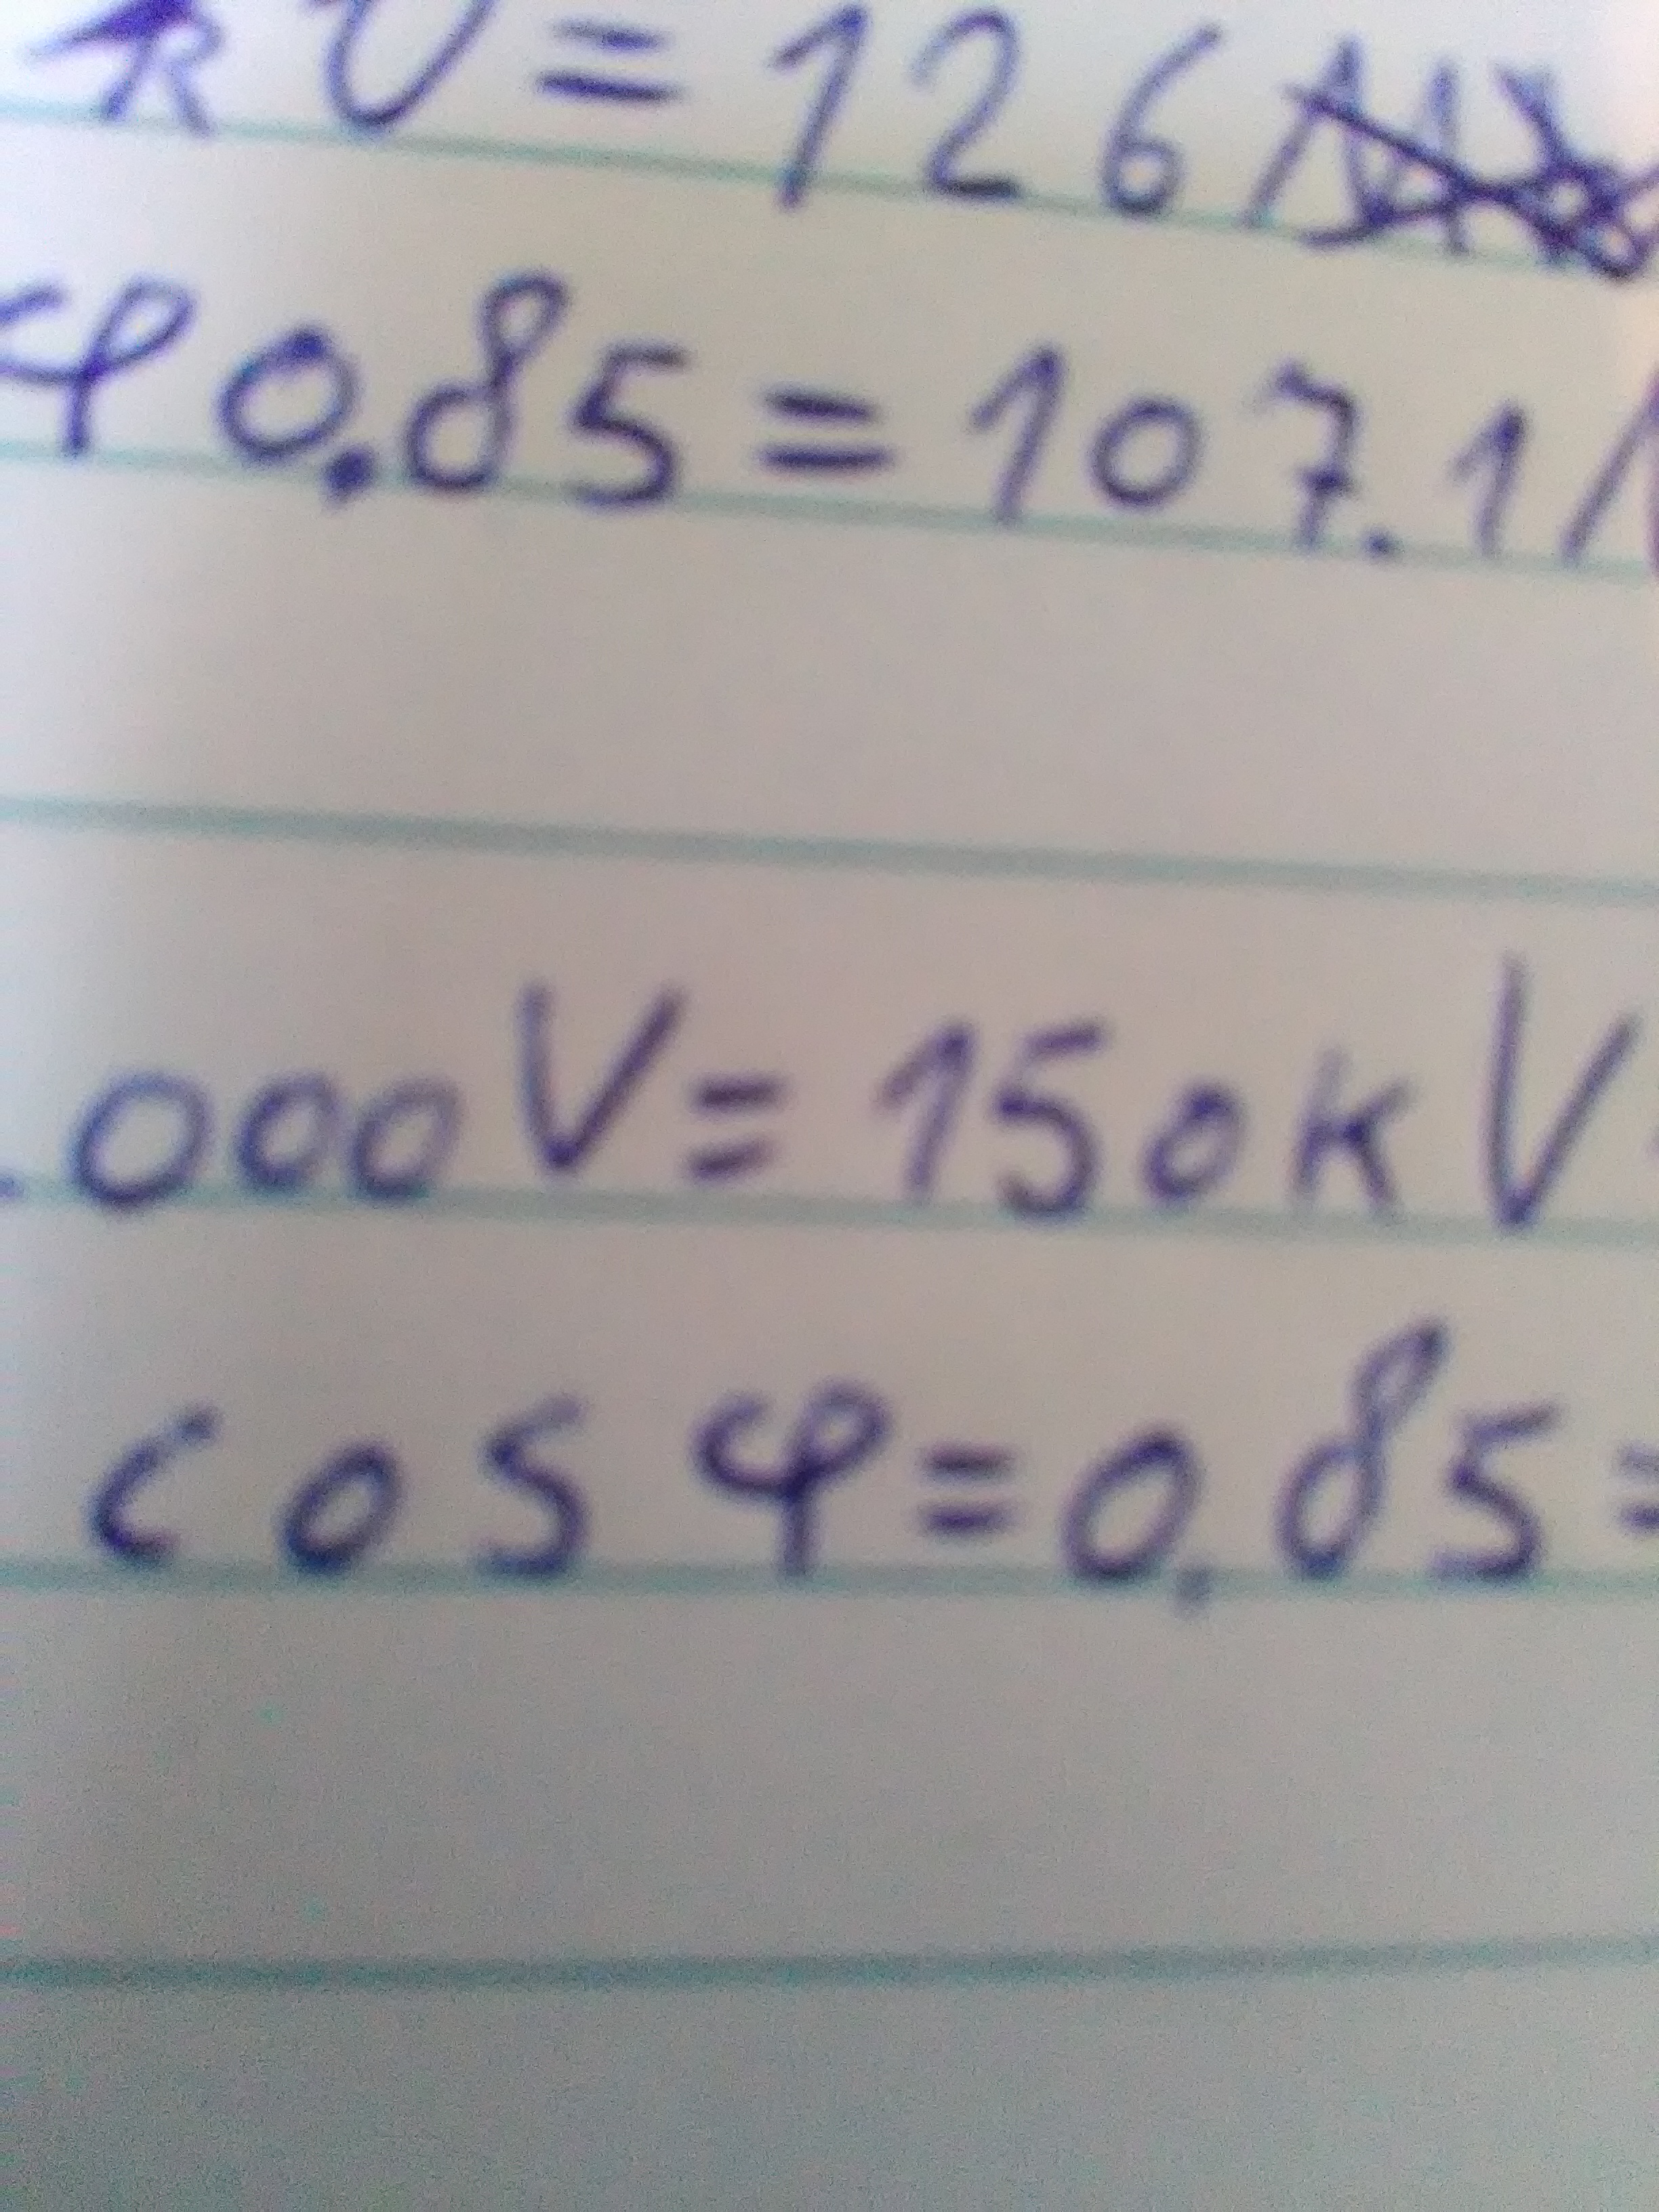 kV = 126
φ 0.85 = 107.1
.000 V = 150 kV
cos φ = 0.85 =